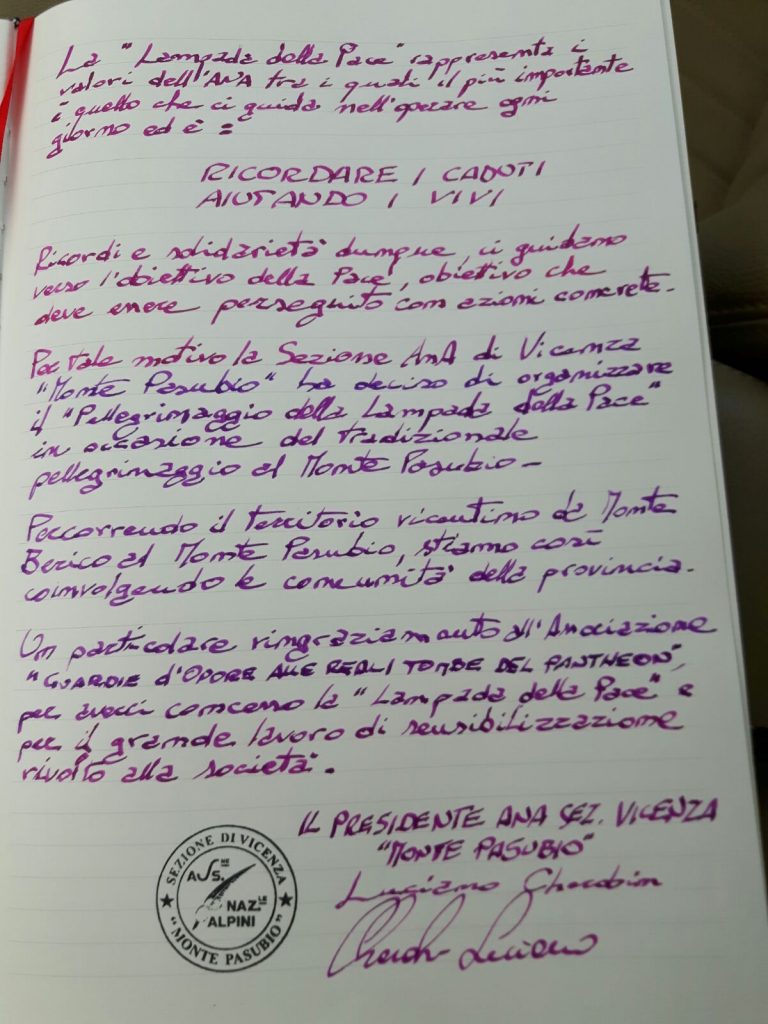 La "Lampada della Pace" rappresenta i
valori dell'ANA tra i quali il più importante
è quello che ci guida nell'operare ogni
giorno ed è =
RICORDARE I CADUTI
AIUTANDO I VIVI
Ricordi e solidarietà dunque, ci guidano
verso l'obiettivo della Pace, obiettivo che
deve essere perseguito con azioni concrete.
Per tale motivo la Sezione ANA di Vicenza
"Monte Pasubio" ha deciso di organizzare
il "Pellegrimaggio della Lampada della Pace"
in occasione del tradizionale
pellegrimaggio al Monte Pasubio -
Percorrendo il territorio vicentino da Monte
Berico al Monte Pasubio, stiamo così
coinvolgendo le comunità della provincia.
Un particolare ringraziamento all'Associazione
"GUARDIE d'ONORE ALLE REALI TOMBE DEL PANTHEON",
per averci concesso la "Lampada della Pace" e
per il grande lavoro di sensibilizzazione
rivolto alla società.
IL PRESIDENTE ANA SEZ. VICENZA
"MONTE PASUBIO"
Luciano Cherobin
Cherobin Luciano
SEZIONE DI VICENZA
ASS.NE
NAZ.LE
ALPINI
"MONTE PASUBIO"